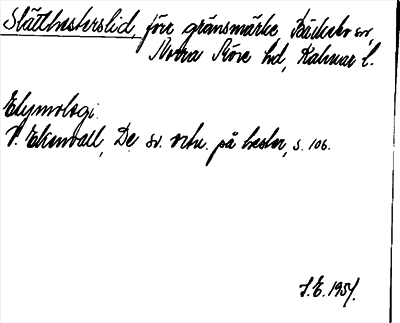 Slätthesterslid, förr gränsmärke, Bäckebo sn,
Norra Möre hd, Kalmar l.
Etymologi.
V. Ekenvall, De sv. ortn. på hester, s. 106.
S.E. 1951.